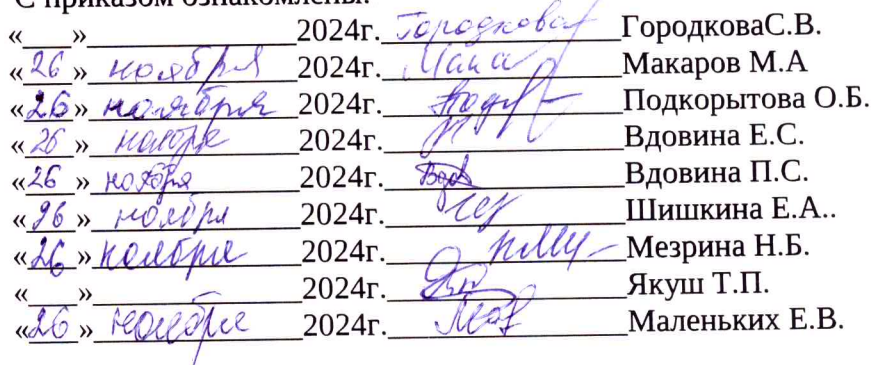 С приказом ознакомлены:
«___»_______________2024г. Городкова ГородковаС.В.
«26» ноября 2024г. Мака Макаров М.А
«26» ноября 2024г. Подк Подкорытова О.Б.
«26» ноября 2024г. Вдовина Е.С.
«26» ноября 2024г. Вдов Вдовина П.С.
«26» ноября 2024г. Шишкина Е.А..
«26» ноября 2024г. Мезрина Н.Б.
«___»_______________2024г. Якуш Т.П.
«26» ноября 2024г. Маленьких Е.В.